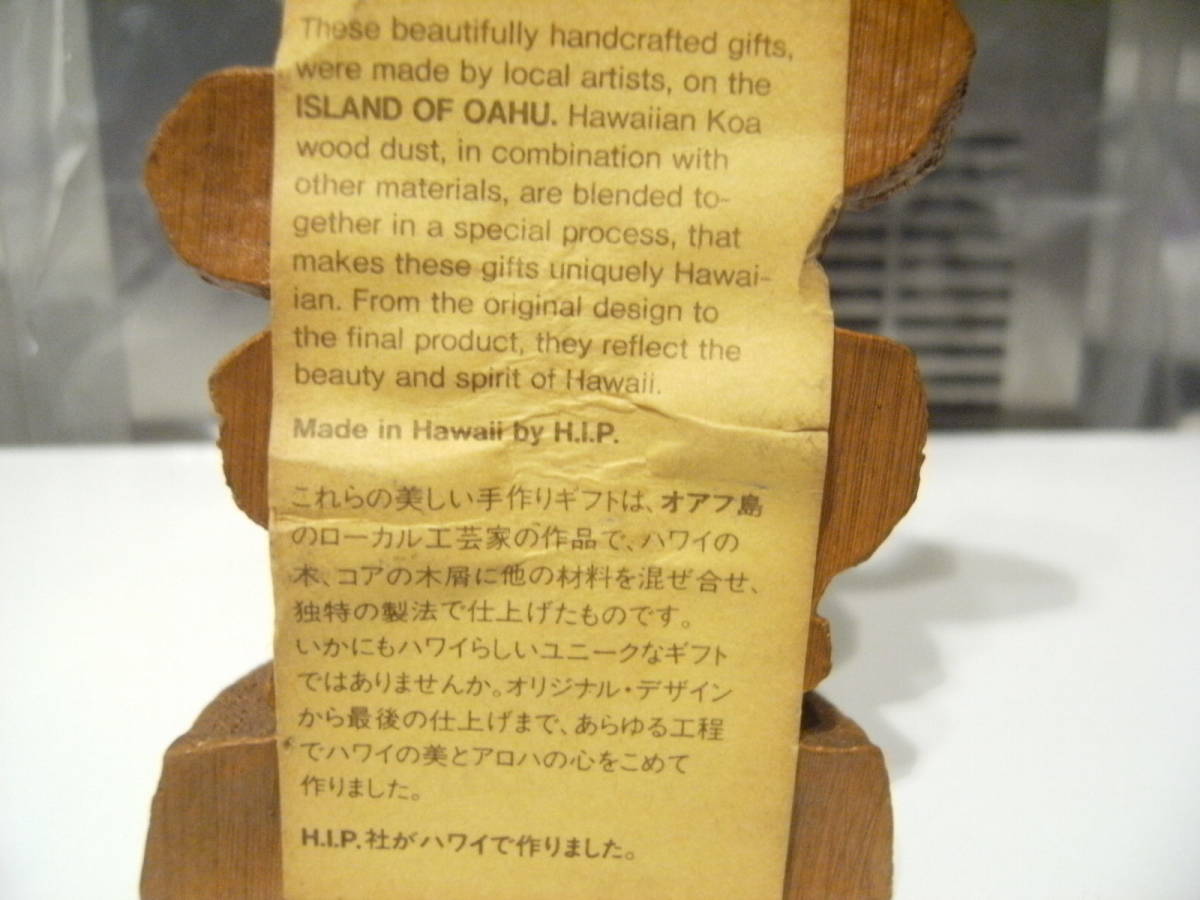 These beautifully handcrafted gifts,
were made by local artists, on the
ISLAND OF OAHU. Hawaiian Koa
wood dust, in combination with
other materials, are blended to-
gether in a special process, that
makes these gifts uniquely Hawai-
ian. From the original design to
the final product, they reflect the
beauty and spirit of Hawaii.
Made in Hawaii by H.I.P.
これらの美しい手作りギフトは、オアフ島
のローカル工芸家の作品で、ハワイの
木、コアの木屑に他の材料を混ぜ合せ、
独特の製法で仕上げたものです。
いかにもハワイらしいユニークなギフト
ではありませんか。オリジナル・デザイン
から最後の仕上げまで、あらゆる工程
でハワイの美とアロハの心をこめて
作りました。
H.I.P.社がハワイで作りました。